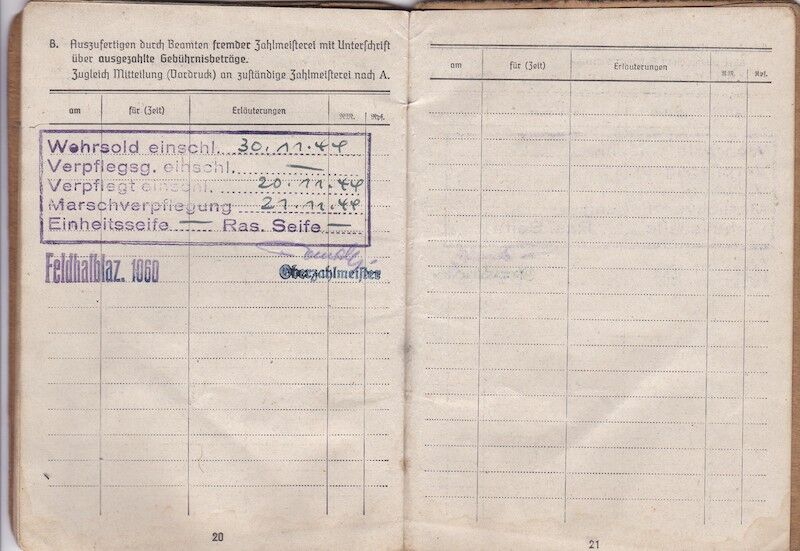 B. Auszufertigen durch Beamten fremder Zahlmeisterei mit Unterschrift
über ausgezahlte Gebührnisbeträge.
Zugleich Mitteilung (Vordruck) an zuständige Zahlmeisterei nach A.
am für (Zeit) Erläuterungen RM. Rpf.
Wehrsold einschl. 30.11.44
Verpflegsg. einschl. —
Verpflegt einschl. 20.11.44
Marschverpflegung 21.11.44
Einheitsseife — Ras. Seife —
Feldhalblaz. 1060
Oberzahlmeister
20
am für (Zeit) Erläuterungen RM. Rpf.
21